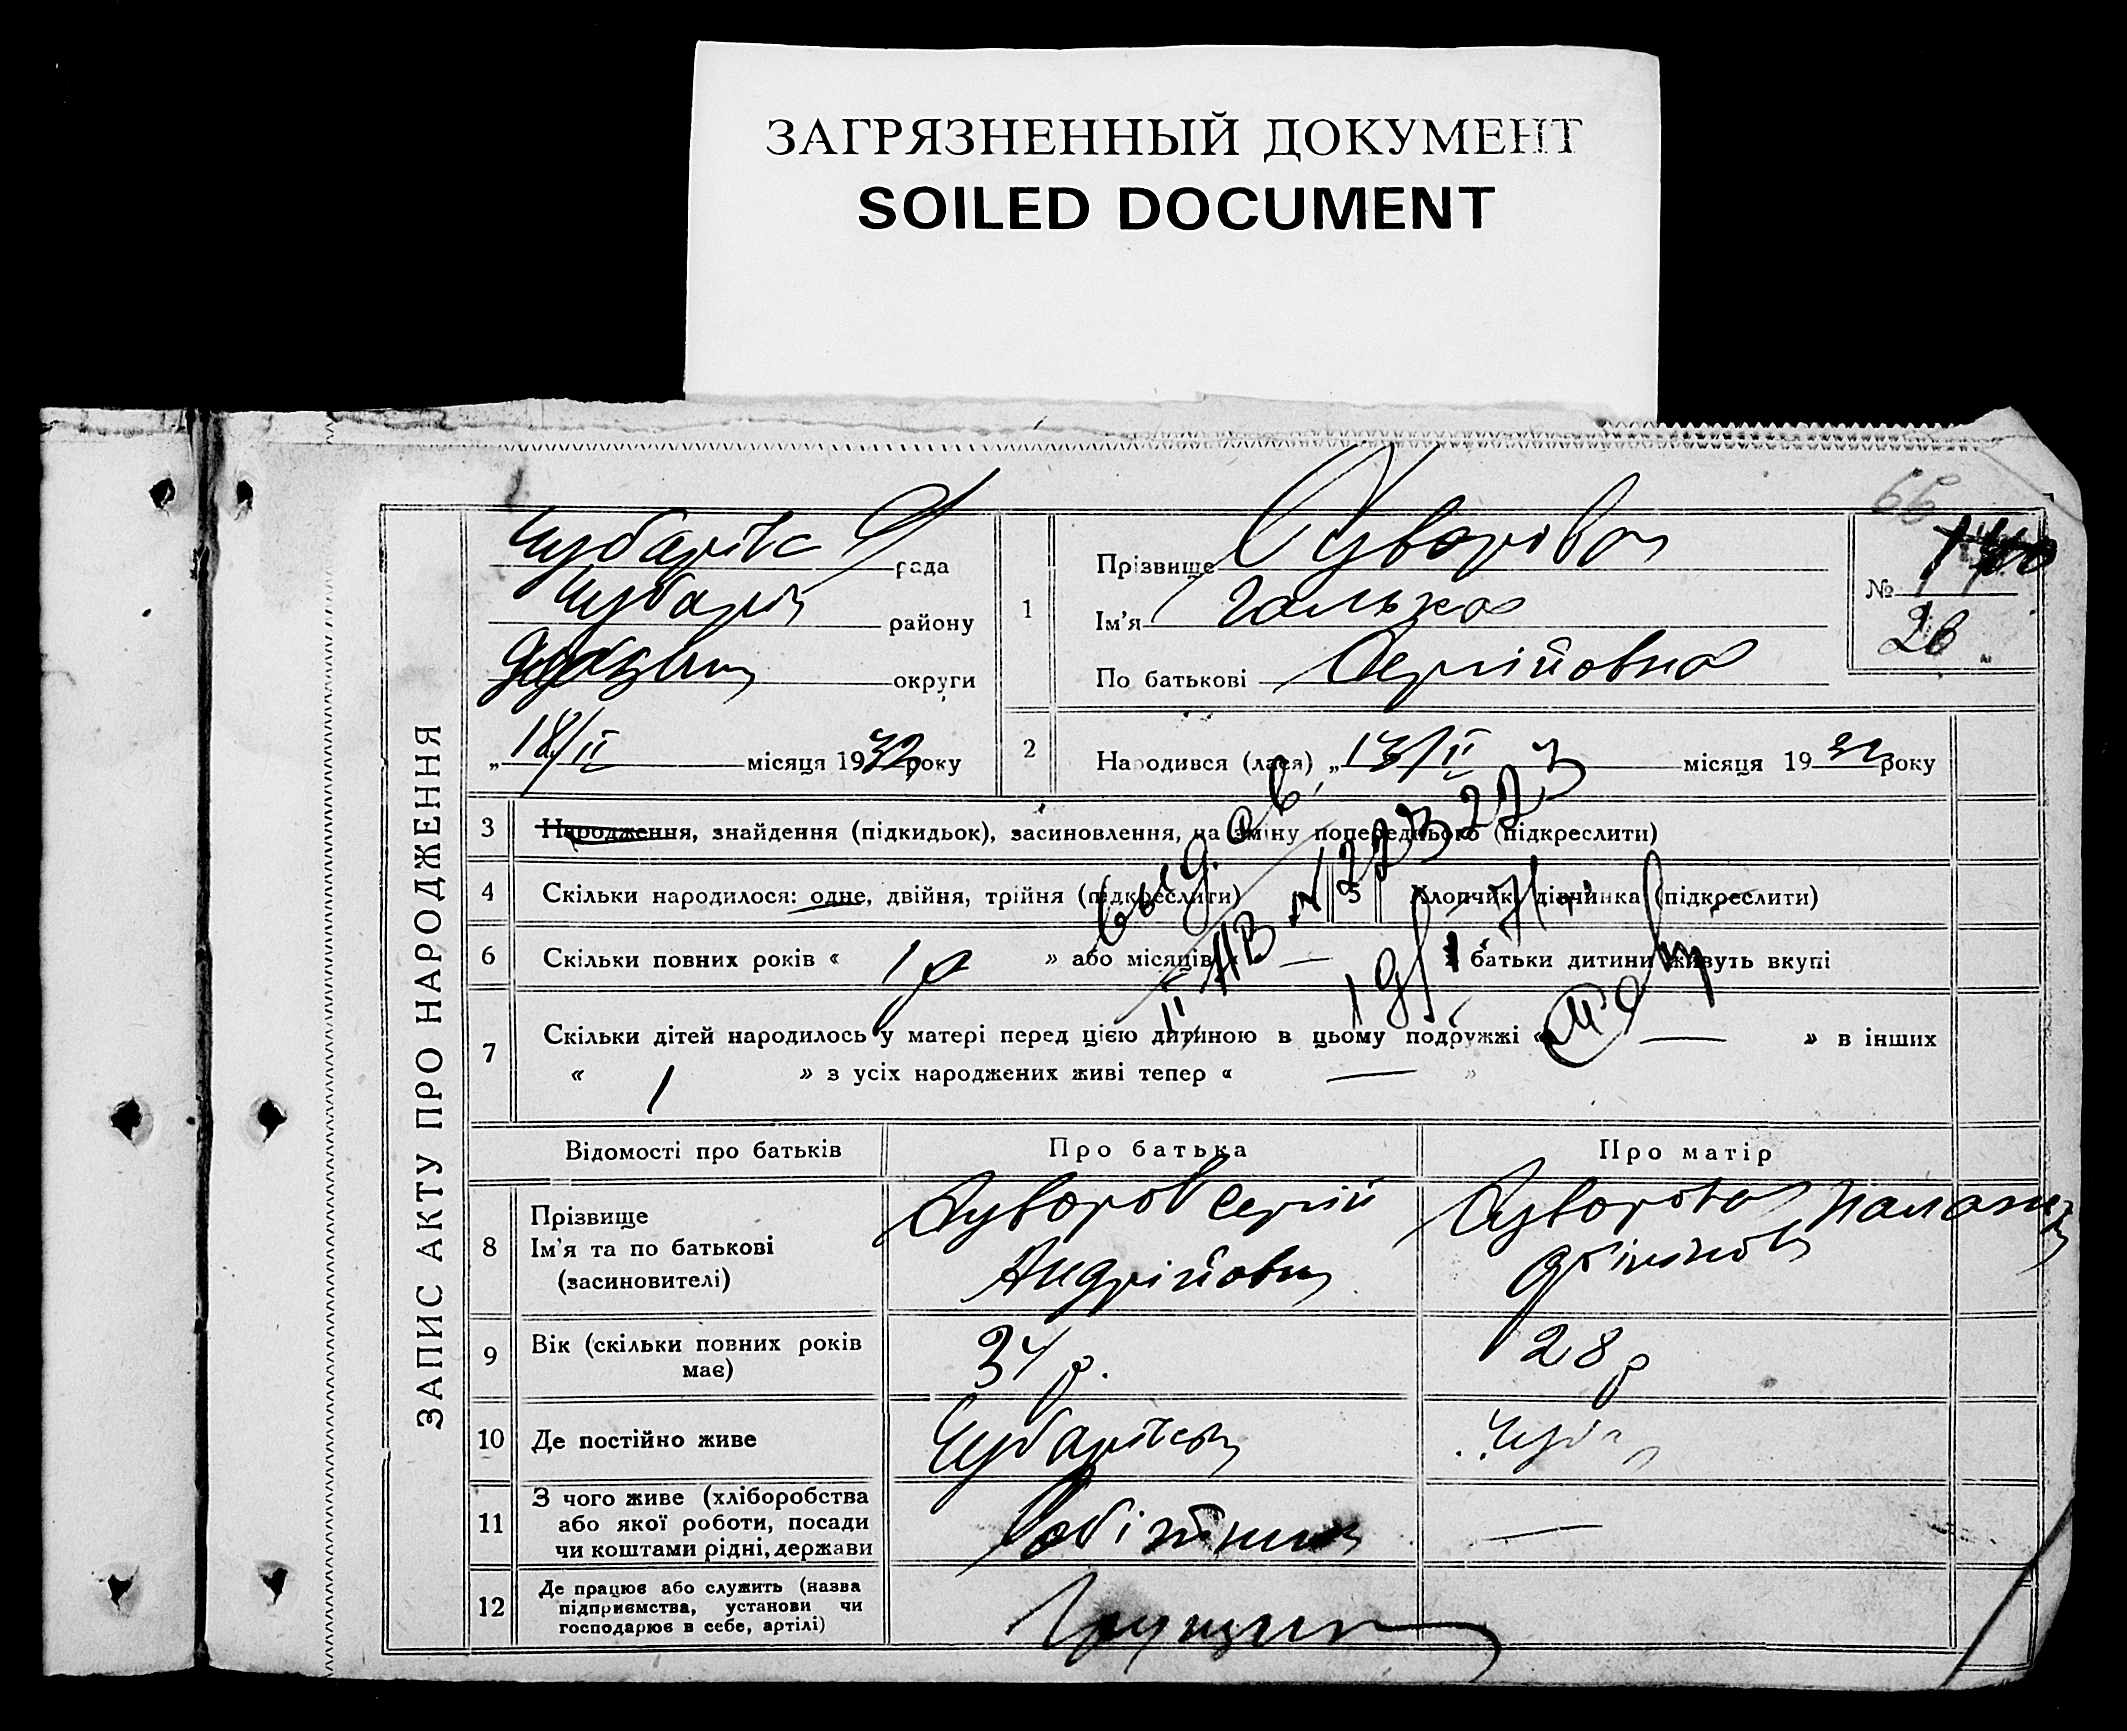 ЗАГРЯЗНЕННЫЙ ДОКУМЕНТ
SOILED DOCUMENT
66
ЗАПИС АКТУ ПРО НАРОДЖЕННЯ
рада
району
округи
„ 18/II місяця 1932 року
1
Прізвище Суворова
Ім'я Галька
По батькові Сергійовна
№
26
2
Народився (лася) „ 13/II місяця 19 32 року
3 Народження, знайдення (підкидьок), засиновлення, на зміну попереднього (підкреслити)
4 Скільки народилося: одне, двійня, трійня (підкреслити)
5 Хлопчик, дівчинка (підкреслити)
6 Скільки повних років « 1 р » або місяців « — батьки дитини живуть вкупі
7 Скільки дітей народилось у матері перед цією дитиною в цьому подружжі « — » в інших
« 1 » з усіх народжених живі тепер « — »
Выд. св.
II АВ № 273223
Відомості про батьків
Про батька
Про матір
8 Прізвище
Ім'я та по батькові
(засиновителі)
Суворов Сергій
Андрійович
Суворова
9 Вік (скільки повних років
має)
34 р.
28 р
10 Де постійно живе
11 З чого живе (хліборобства
або якої роботи, посади
чи коштами рідні, держави
Робітник
—
12 Де працює або служить (назва
підприємства, установи чи
господарює в себе, артілі)